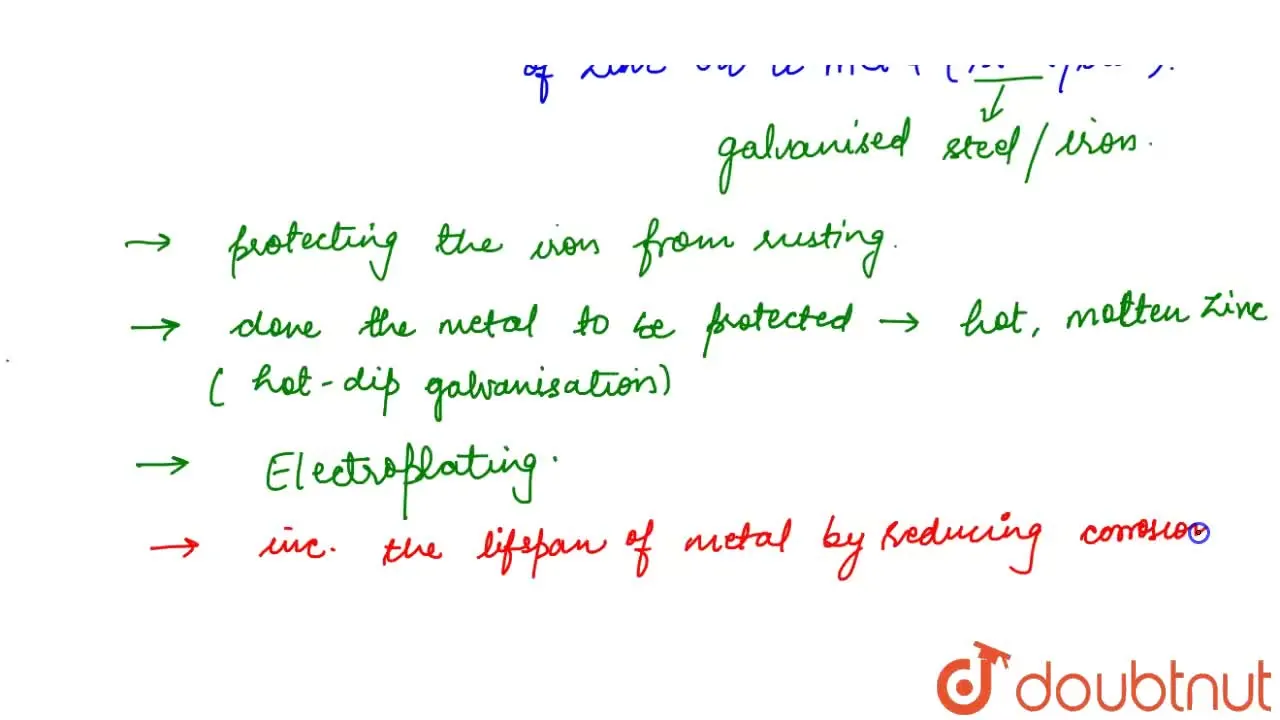 of zinc on a
galvanised steel/iron.
→ protecting the iron from rusting.
→ done the metal to be protected → hot, molten zinc
(hot-dip galvanisation)
→ Electroplating.
→ inc. the lifspan of metal by reducing corrosion
doubtnut